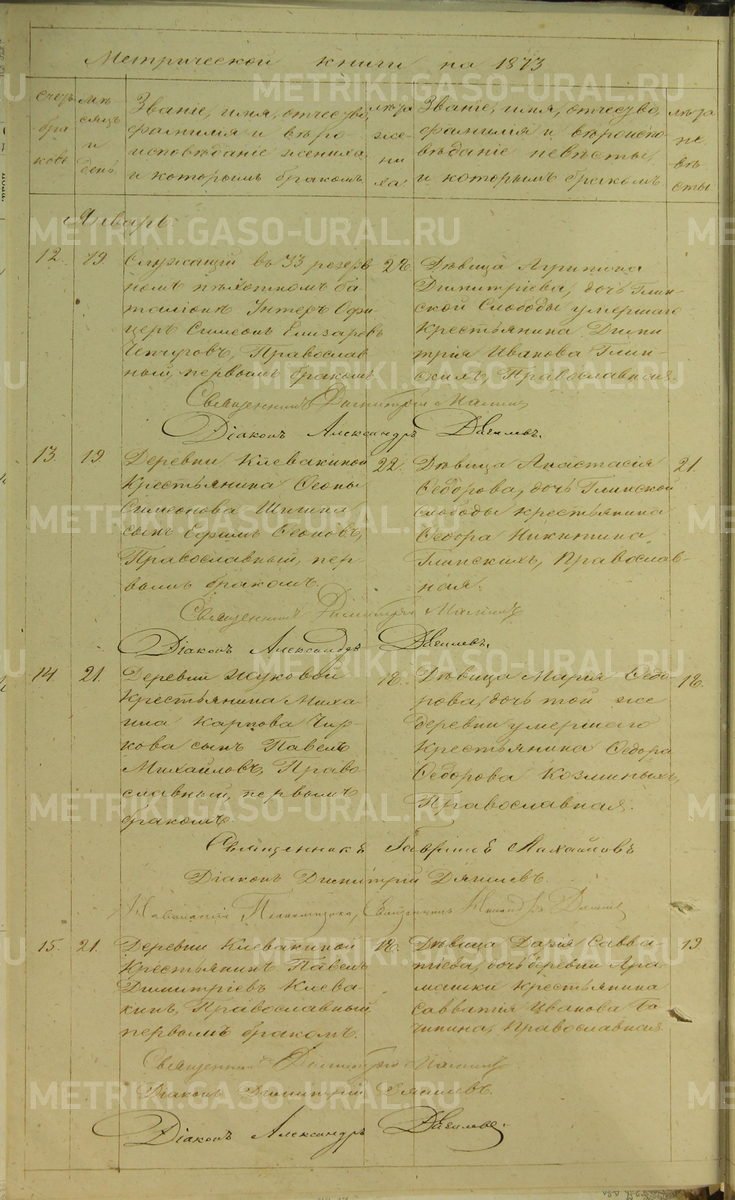 Метрической книги на 1873
Счетъ браковъ
Мѣсяцъ и день
Званіе, имя, отчество, фамилія и вѣроисповѣданіе жениха, и которымъ бракомъ
лѣта жениха.
Званіе, имя, отчество, фамилія и вѣроисповѣданіе невѣсты, и которымъ бракомъ
лѣта невѣсты
Январь.
12. 19
Служащій въ 33 резервномъ
пѣхотномъ баталіонѣ
Унтеръ Офицеръ
Симеонъ Елизаровъ
Чепчуговъ, Православный,
первымъ бракомъ
28.
Дѣвица
Димитріева, дочь Глинской
Слободы умершаго
Крестьянина Димитрія
Иванова Глинскихъ,
Православная.
Священникъ Димитрій
Діаконъ Александръ
13. 19
Деревни Клевакиной
Крестьянина Ѳеоны
Симеонова
сынъ Ефимъ Ѳеоновъ,
Православный, первымъ
бракомъ.
22.
Дѣвица Анастасія
Ѳедорова, дочь Глинской
слободы крестьянина
Ѳедора Никитина
Глинскихъ, Православная.
21.
Священникъ Димитрій
Діаконъ Александръ
14. 21.
Деревни Жуковой
Крестьянина Михаила
Карпова Чиркова
сынъ Павелъ
Михайловъ, Православный,
первымъ
бракомъ.
18.
Дѣвица Марія Ѳедорова,
дочь той же
деревни умершаго
Крестьянина Ѳедора
Ѳедорова Козминыхъ,
Православная.
18.
Священникъ Гавріилъ Михайловъ
Діаконъ Димитрій
15. 21.
Деревни Клевакиной
Крестьянинъ Павелъ
Димитріевъ Клевакинъ,
Православный
первымъ бракомъ.
18.
Дѣвица Дарія Савватіева,
дочь деревни Арамашки
Крестьянина
Савватія Иванова
Православная
19
Священникъ Димитрій
Діаконъ Димитрій
Діаконъ Александръ
METRIKI.GASO-URAL.RU